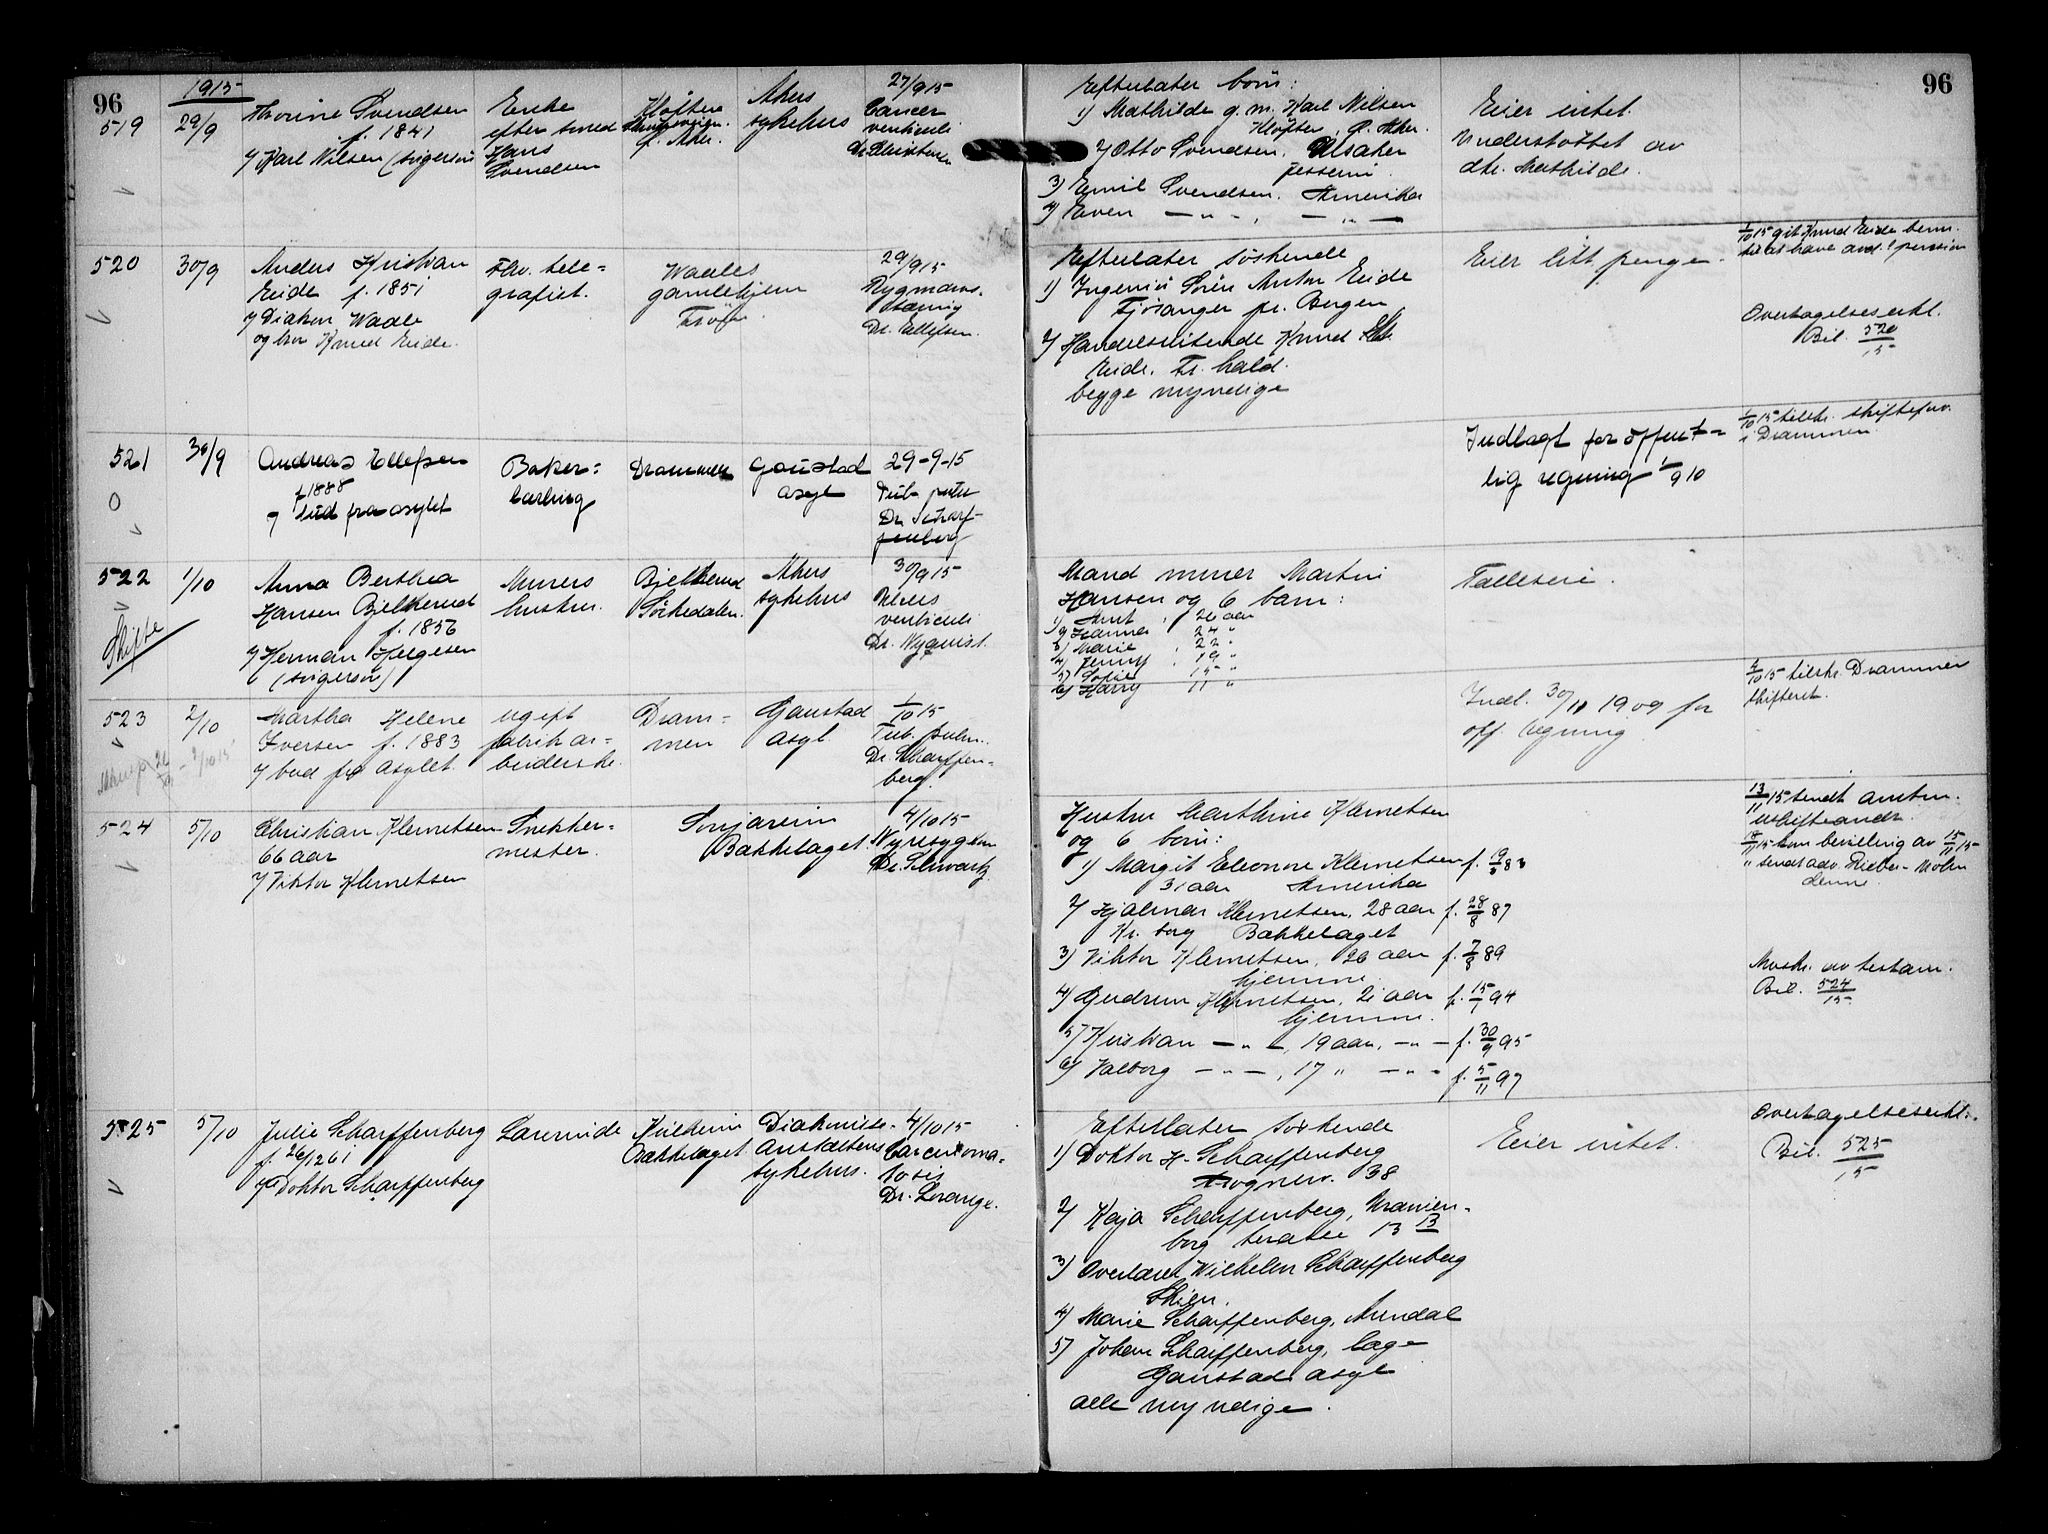 96
1915
519
29/9
Thorine Svendsen
f. 1841
v/ Karl Nilsen (svigersøn)
Enke
efter smed
Hans
Svendsen
Kløfter
Ø. Aker.
Akers
sykehus
27/9 15
Cancer
ventriculi
Efterlater børn:
1) Mathilde g. m. Karl Nilsen
Kløfter, Ø. Aker.
2) Otto Svendsen, Ulsaker
Jessum
3) Emil Svendsen. Amerika
4) Even — " — , — " —
Eier intet.
Understøttet av
dtr. Mathilde.
96
520
30/9
Anders Kristian
Eide f. 1851
v/ Diakon Waale
og bror Knud Eide.
Fhv. tele=
grafist.
Waales
gamlehjem
29/9 15
Rygmarvs-
tæring
Dr. Ellefsen.
Efterlater søskende
1) Ingeniør Sören Anton Eide
Fjøsanger pr. Bergen
2) Handelsreisende Knud
Eide. Fr. hald.
begge myndige
Eier litt penger.
1/10 15 git Knud Eide bevi.
til at have avd.s pension
Overtagelseserkl.
Bil. 520/15
521
30/9
Andreas Ellefsen
f 1888
v/ bud fra asylet
Baker=
lærling
Drammen
Gaustad
asyl
29-9-15
Tub. pulm
Dr. Scharf-
fenberg
Indlagt for offent=
lig regning 1/9 10
1/10 15 tilskr. skifteforv.
i Drammen.
522
Skifte
1/10
Anna Berthea
Hansen Bjelkerud
f. 1856
v/ Herman Helgesen
(svigersøn)
Murers
hustru.
Bjelkerud
Sørkedalen.
Akers
sykehus
30/9 15
Ulcus
ventriculi
Dr. Nyquist.
Mand murer Martin
Hansen og 6 barn:
1) Arnt , 26 aar
2) Hanna , 24 "
3) Marie , 22 "
4) Jenny , 19 "
5) Sofie , 15 "
6) Harry , 11 "
Fælleseie.
523
2/10
Martha Helene
Iversen f. 1883
v/ bud fra asylet.
ugift
fabrikar=
beiderske.
Dram=
men
Gaustad
asyl.
1/10 15
Tub. pulm.
Dr. Scharffen=
berg.
Indl. 30/11 1909 for
off. regning.
2/10 15 tilskr. Drammen
skifteret.
524
5/10
Christian Klemetsen
66 aar
v/ Viktor Klemetsen
Snekker=
mester.
Sonjaheim
Bækkelaget.
4/10 15
Nyresygdom
Dr. Schwartz.
Hustru Marthine Klemetsen
og 6 børn:
1) Margit Eleonore Klemetsen f. 83
31 aar Amerika
2) Hjalmar Klemetsen, 28 aar f. 28/8 87
Kr. borg Bækkelaget
3) Viktor Klemetsen, 26 aar f. 7/8 89
hjemme.
4) Gudrun Klemetsen, 21 aar f. 15/7 94
hjemme.
5) Kristian — " —, 19 aar, — " — f. 30/9 95
6) Valborg — " — , 17 " — " — f. 5/11 97
13/11 15 sendt
uskifteandr.
bevilling av 15/11 15
" sendt adv. Rieber-Mohn
denne.
Avskr. av testam.
Bil. 524/15.
525
5/10
Julie Scharffenberg
f. 26/12 61
v/ Doktor Scharffenberg
Lærerinde
Bækkelaget
Diakonisse-
anstaltens
sykehus.
4/10 15
Carcinoma-
tosis
Dr. Lorange.
Efterlater søskende
1) Doktor H. Scharffenberg
Frognerv. 38
2) Kaja Scharffenberg, Uranien-
borg terasse 13 13
3) Overlærer Wilhelm Scharffenberg
Skien.
4) Marie Scharffenberg, Arendal
5) Johan Scharffenberg, læge
Gaustad asyl
alle myndige.
Eier intet.
Overtagelseserkl.
Bil. 525/15